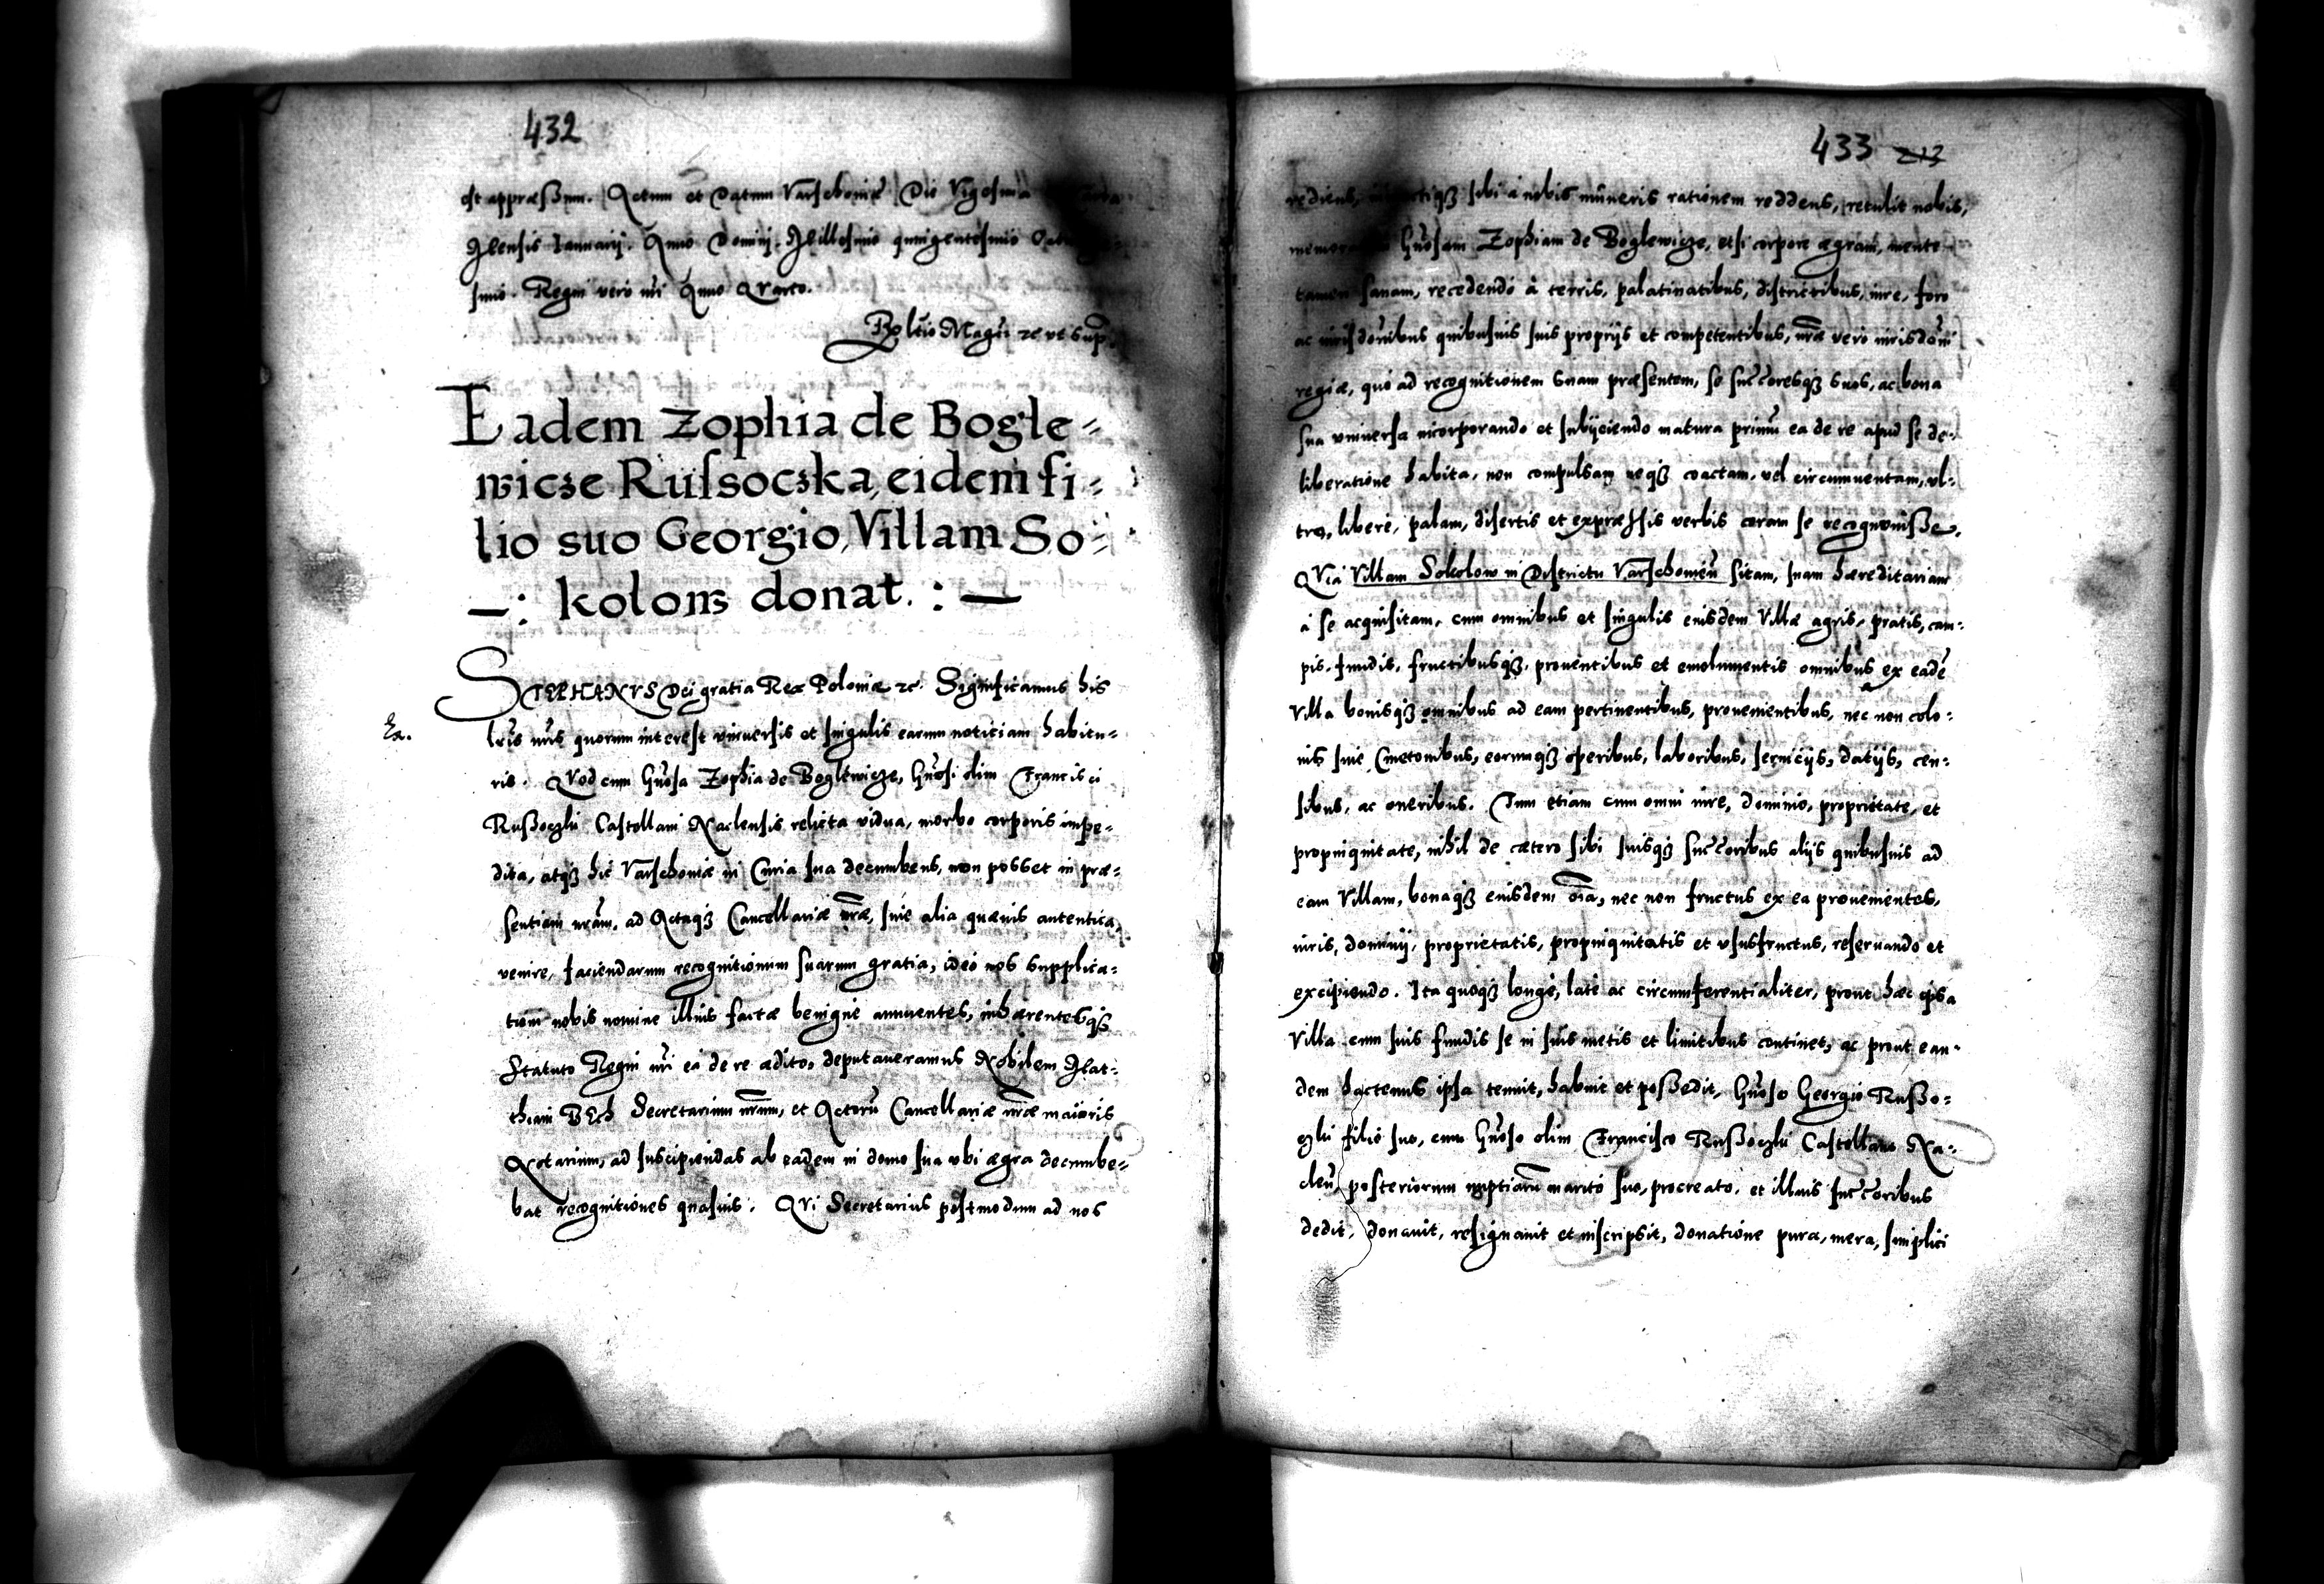 432
est appræßum. Actum et Datum Varschoviæ Die Vigesima
Mensis Ianuarij. Anno Domini Millesimo quingentesimo
simo. Regni vero nri Anno Qvarto.
Rltio Magci zc ut sup.
Eadem Zophia de Bogle=
wicze Russoczka, eidem fi=
lio suo Georgio, Villam So=
—: kolow donat. : —
STEPHANVS Dei gratia Rex Poloniæ zc. Significamus his
lris nris quorum interest universis et singulis earum noticiam habitu=
ris. Qvod cum Gnosa Zophia de Boglewicze, Gnosi olim Francisci
Rußoczki Castellani Naclensis relicta vidua, morbo corporis impe=
dita, atq3 hic Varschoviæ in Curia sua decumbens, non posset in præ=
sentiam nram, ad Actaq3 Cancellariæ nræ, sive alia quævis autentica,
venire, faciendarum recognitionum suarum gratia, ideo nos supplica=
tioni nobis nomine illius factæ benigne annuentes, inhærentesq3
Statuto Regni nri ea de re ædito, deputaveramus Nobilem Mat=
thiam BEch Secretarium nrum, et Actorũ Cancellariæ nræ maioris
Notarium, ad suscipiendas ab eadem in domo sua ubi ægra decumbe=
bat recognitiones quasvis. Qvi Secretarius postmodum ad nos
433 213
rediens, sibi a nobis muneris rationem reddens, retulit nobis,
Gnosam Zophiam de Boglewicze, etsi corpore ægram, mente
tamen sanam, recedendo à terris, palatinatibus, districtibus, iure, foro
ac iurisdonibus quibusvis suis proprijs et competentibus, nræ vero iurisdoni
regiæ, quo ad recognitionem suam præsentem, se succoresq3 suos, ac bona
sua universa incorporando et subijciendo matura primũ ea de re apud se de=
liberatione habita, non compulsam neq3 coactam, vel circumventam, ul=
tro, libere, palam, disertis et expressis verbis coram se recognovisse.
QVia Villam Sokolow in Districtu Varschovieñ sitam, suam hæreditariam
à se acquisitam, cum omnibus et singulis eiusdem Villæ agris, pratis, cam=
pis, fundis, fructibusq3, proventibus et emolumentis omnibus ex eadẽ
Villa bonisq3 omnibus ad eam pertinentibus, provenientibus, nec non colo=
nis sive Cmetonibus, eorumq3 operibus, laboribus, servicijs, datijs, cen=
sibus, ac oneribus. Tum etiam cum omni iure, dominio, proprietate, et
propinquitate, nihil de cætero sibi suisq3 succoribus alijs quibusvis ad
eam Villam, bonaq3 eiusdem oia, nec non fructus ex ea provenientes,
iuris, dominij, proprietatis, propinquitatis et ususfructus, reservando et
excipiendo. Ita quoq3 longe, late ac circumferentialiter, prout hæc ipsa
Villa cum suis fundis se in suis metis et limitibus continet, ac prout ean=
dem hactenus ipsa tenuit, habuit et poßedit, Gnoso Georgio Rußo=
czki filio suo, cum Gnoso olim Francisco Rußoczki Castellano Na=
cleñ posteriorum nuptiarũ marito suo, procreato, et illius succoribus
dedit, donavit, resignavit et inscripsit, donatione pura, mera, simplici